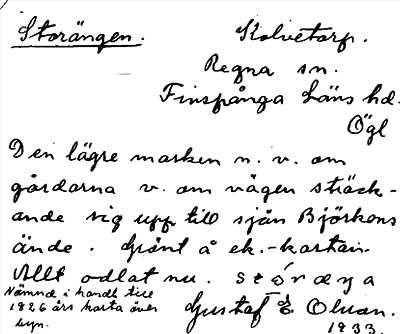 Storängen. Kolvetorp.
Regna sn.
Finspånga läns hd.
Ögl
Den lägre marken n. v. om
gårdarna v. om vägen sträck-
ande sig upp till sjön Björkens
ände. Grönt å ek.-kartan.
Allt odlat nu.
Nämnd i handl till
1826 års karta över
byn.
Gustaf E Olson.
1933.